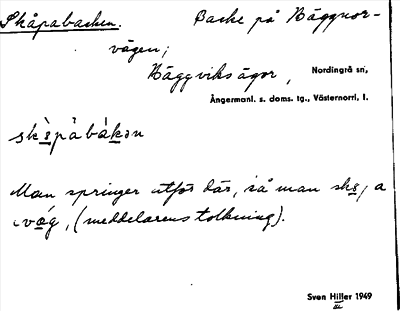 Skåpabacken. Backe på Häggnor-
vägen;
Häggviksägor, Nordingrå sn,
Ångermanl. s. doms. tg., Västernorrl. l.
Man springer utför där, så man
(meddelarens tolkning).
Sven Hiller 1949
III